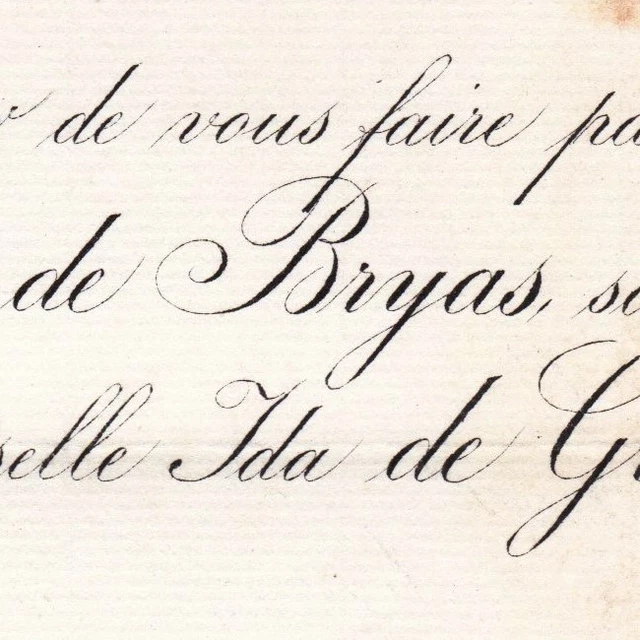 de vous faire pa
de Bryas, s
selle Ida de G